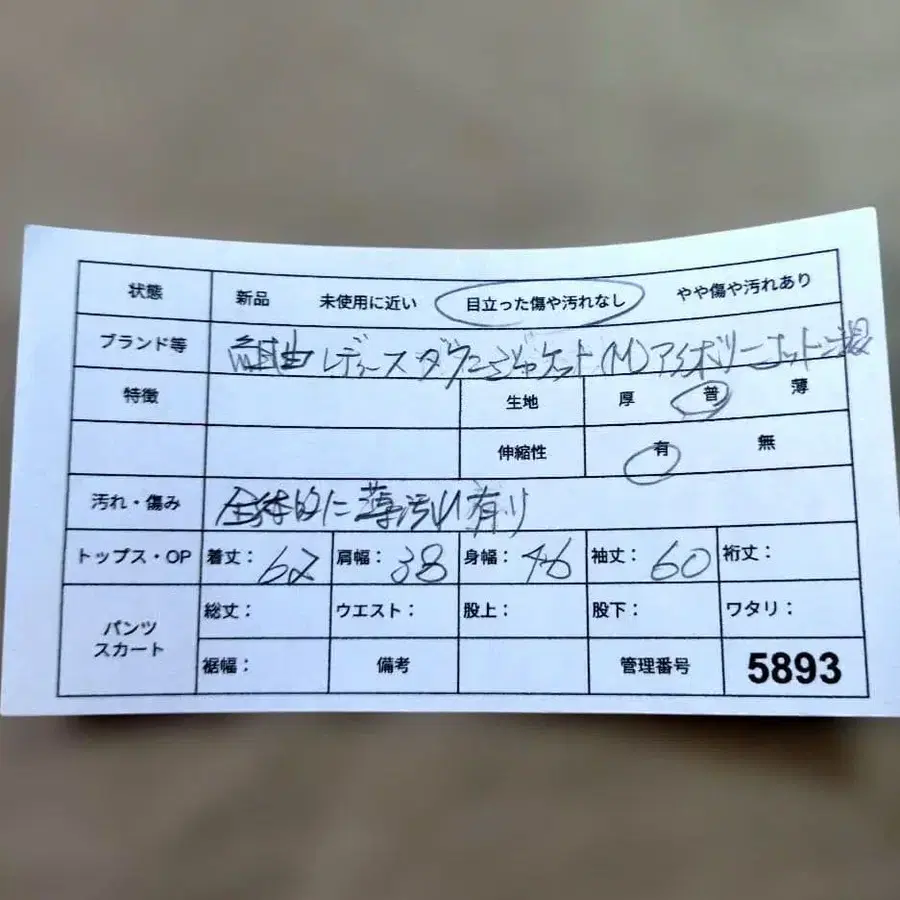 状態 新品 未使用に近い 目立った傷や汚れなし やや傷や汚れあり
ブランド等 組曲 レディース ダウンジャケット (M) アイボリー
特徴 生地 厚 普 薄
伸縮性 有 無
汚れ・傷み 全体的に薄汚れ有り
トップス・OP 着丈: 62 肩幅: 38 身幅: 46 袖丈: 60 裄丈:
パンツ スカート 総丈: ウエスト: 股上: 股下: ワタリ:
裾幅: 備考 管理番号 5893